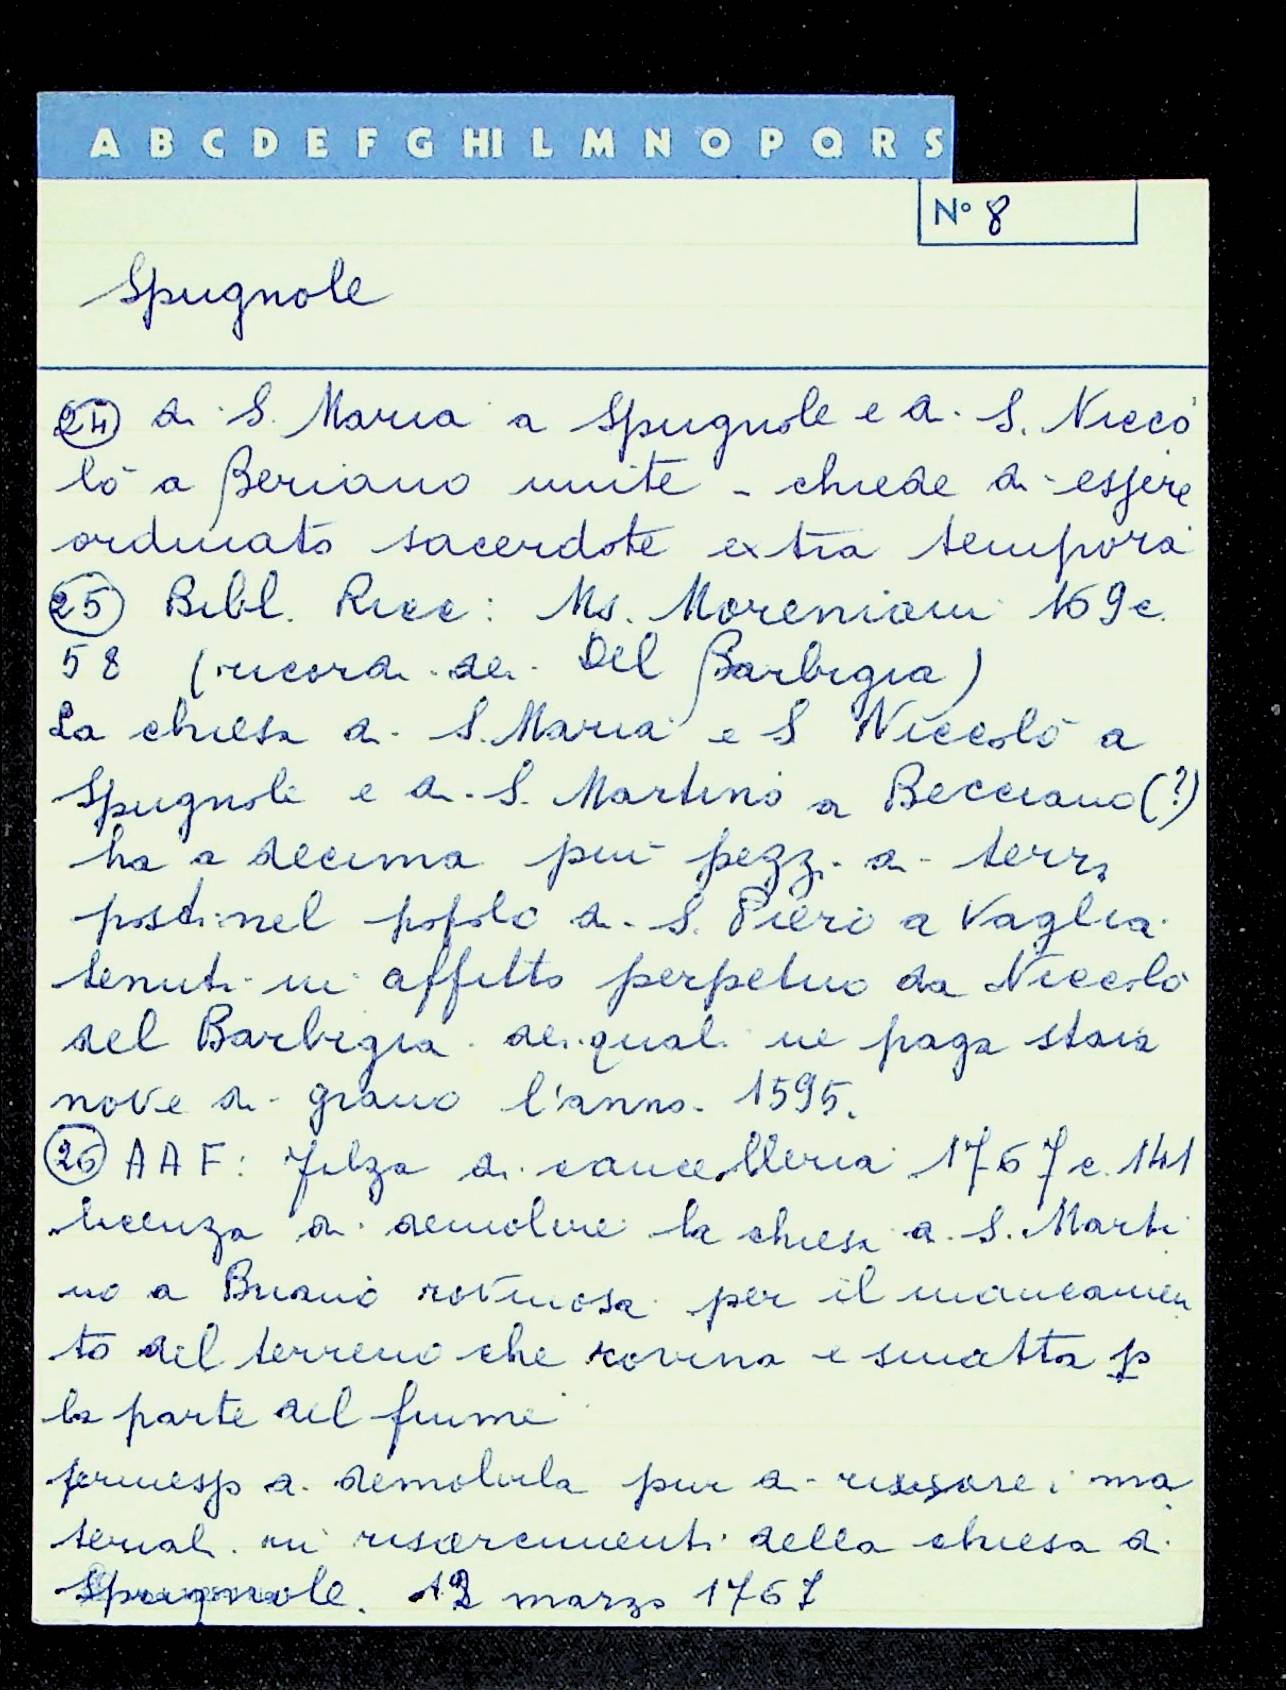 A B C D E F G HI L M N O P Q R S
N° 8
Spugnole
24 di S. Maria a Spugnole e di S. Nicco
lò a Beriano unite - chiede di essere
ordinato sacerdote extra tempora
25 Bibl. Ricc: Ms. Moreniani 169 c.
58 (ricordi dei Del Barbigia)
La chiesa di S. Maria e S Niccolò a
Spugnole e di S. Martino a Becciano (?)
ha a decima più pezzi di terra
posti nel popolo di S. Piero a Vaglia
tenuti in affitto perpetuo da Niccolò
del Barbigia dei quali ne paga staia
nove di grano l'anno. 1595.
26 AAF: filza di cancelleria 1767 c. 141
licenza di demolire la chiesa di S. Marti
no a Buiano rovinosa per il mancamen
to del terreno che rovina e smatta p
la parte del fiume
permesso di demolirla pur di riusare i ma
teriali in risarcimenti della chiesa di
Spugnole. 12 marzo 1767